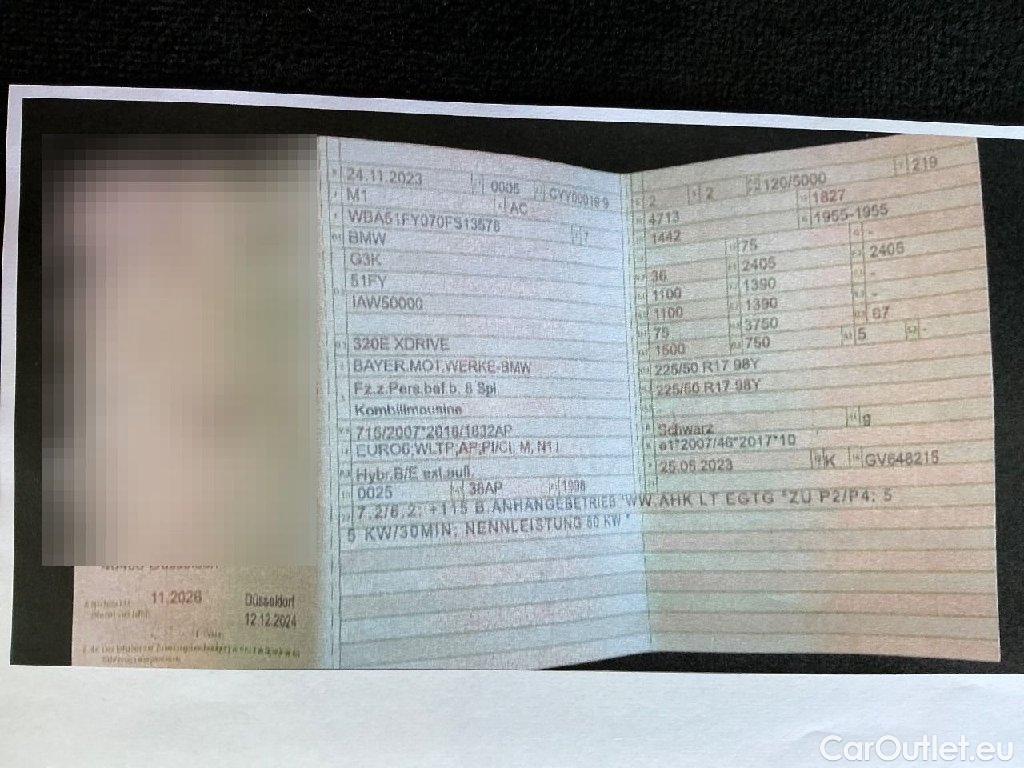 24.11.2023 0005 CYY00019 9
M1 AC
WBA51FY070FS13576 7
BMW
G3K
51FY
IAW50000
320E XDRIVE
BAYER.MOT.WERKE-BMW
Fz.z.Pers.bef.b. 8 Spl
Kombilimousine
715/2007*2018/1832AP
EURO6;WLTP;AP;PI/CI, M, N1 I
Hybr.B/E ext.aufl.
0025 36AP 1998
7.2/8.2: +115 B.ANHÄNGEBETRIEB*WW.AHK LT EGTG *ZU P2/P4: 5
5 KW/30MIN; NENNLEISTUNG 50 KW *
2 2 120/5000 219
4713 1827
1442 1955-1955
75 -
36 2405 2405
1100 1390 -
1100 1390 -
75 3750 67
1500 750 5 -
225/50 R17 98Y
225/50 R17 98Y
Schwarz g
e1*2007/46*2017*10
25.05.2023 K GV648215
11.2026
Düsseldorf
12.12.2024
CarOutlet.eu